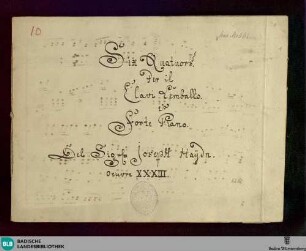 10
Six Quatuors
Per il
Clavi Cembalo
ò
Forte Piano.
Del Sigre Joseph Haydn.
Oeuvre XXXIII
BLB
BADISCHE
LANDESBIBLIOTHEK
Baden-Württemberg